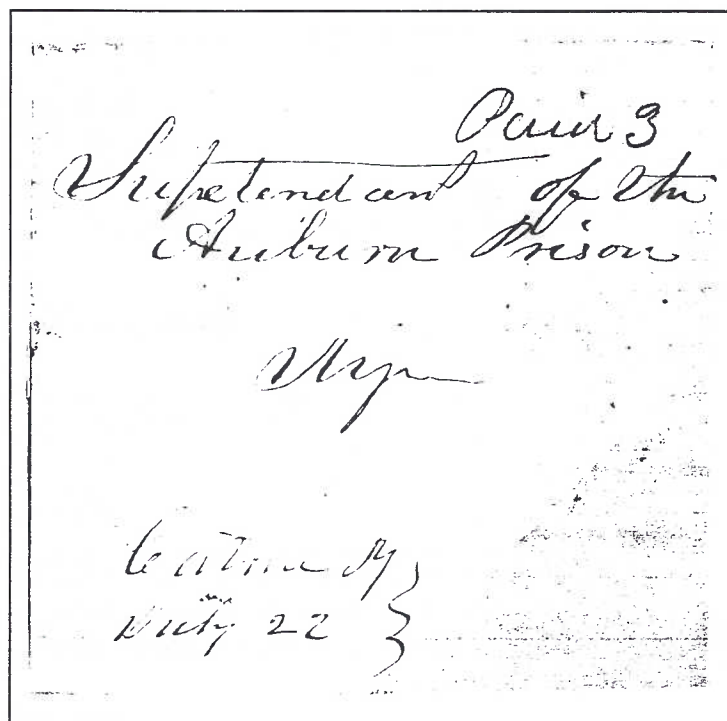 Paid 3
Supetendant of the
Auburn Prison
July 22